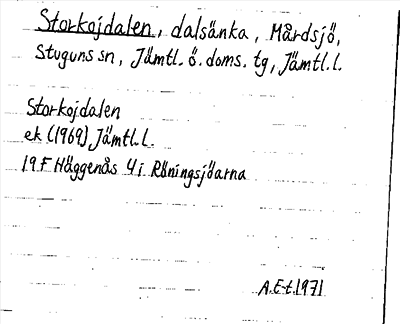 Storkojdalen, dalsänka, Mårdsjö,
Stuguns sn, Jämtl. ö. doms. tg, Jämtl. l.
Storkojdalen
ek (1969) Jämtl. l.
19F Häggenås 4i Röningsjöarna
A.E-t.1971